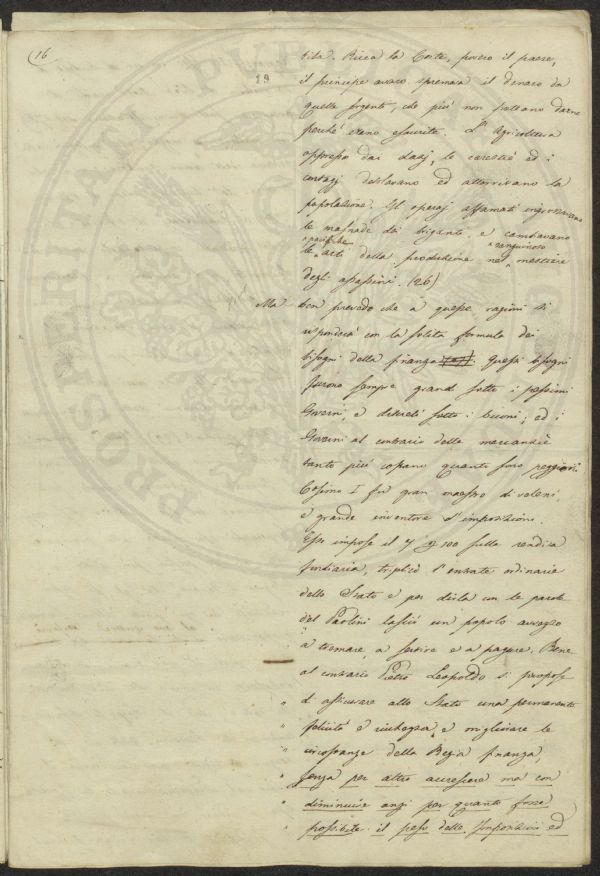 (16
19
tila. Ricca la Corte, povero il paese,
il principe avaro spremeva il denaro da
quelle sorgenti, che più non potevano darne
perchè erano esaurite. L'Agricoltura
oppressa dai dazj, le carestie ed i
contagj desolavano ed atterrivano la
popolazione. Gli operaj affamati ingrossavano
le masnade dei briganti, e cambiavano
le pacifiche arti della produzione nel sanguinoso mestiere
degli assassini. (26)
Ma ben prevedo che a queste ragioni si
risponderà con la solita formula dei
bisogni della finanza. Questi bisogni
furono sempre grandi sotto i pessimi
Governi, e discreti sotto i buoni; ed i
Governi al contrario delle mercanzie
tanto più costano quanto sono peggiori.
Cosimo I fu gran maestro di veleni,
e grande inventore d'imposizioni.
Esso impose il 7 p 100 sulla rendita
fondiaria, triplicò l'entrate ordinarie
dello Stato e per dirla con le parole
del Paolini lasciò un popolo avvezzo
a tremare, a servire e a pagare. Bene
al contrario Pietro Leopoldo si propose
" d'assicurare allo Stato una permanente
" felicità e ricchezza, e migliorare le
" circostanze della Regia finanza,
" senza per altro accrescere ma con
" diminuire anzi per quanto fosse
" possibile il peso delle Imposizioni ed